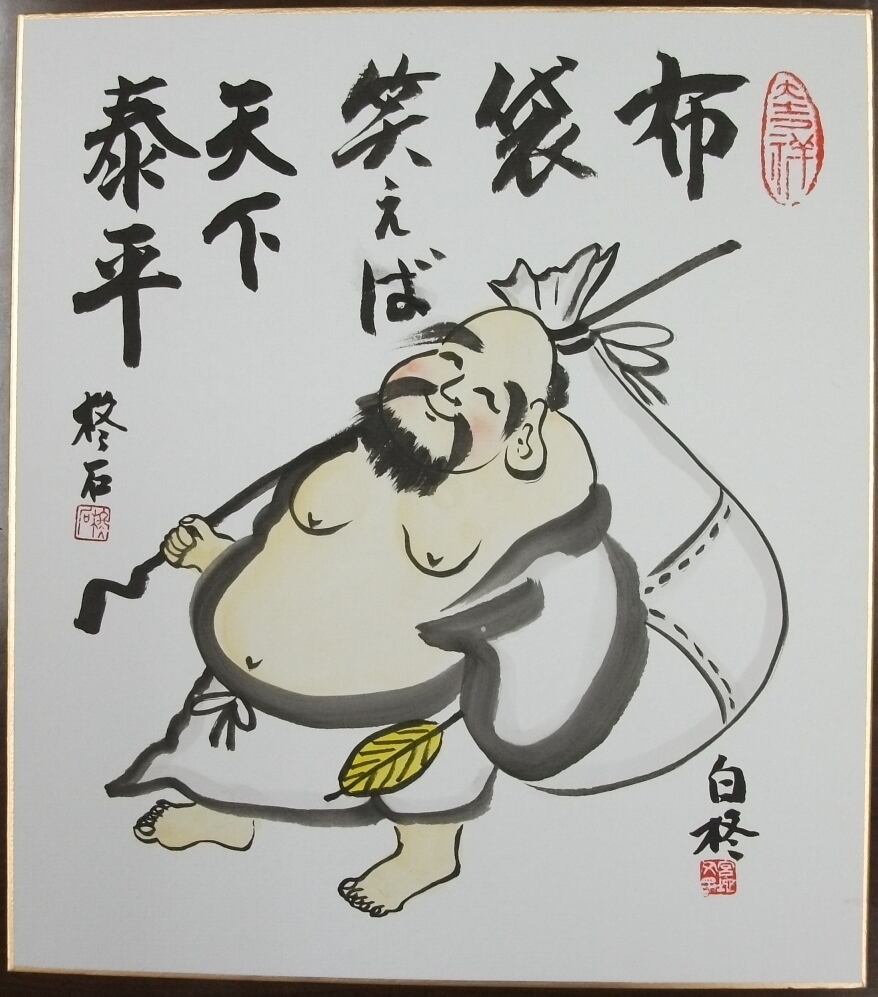 大吉祥
布
袋
笑えば
天下
泰平
柊石
白柊